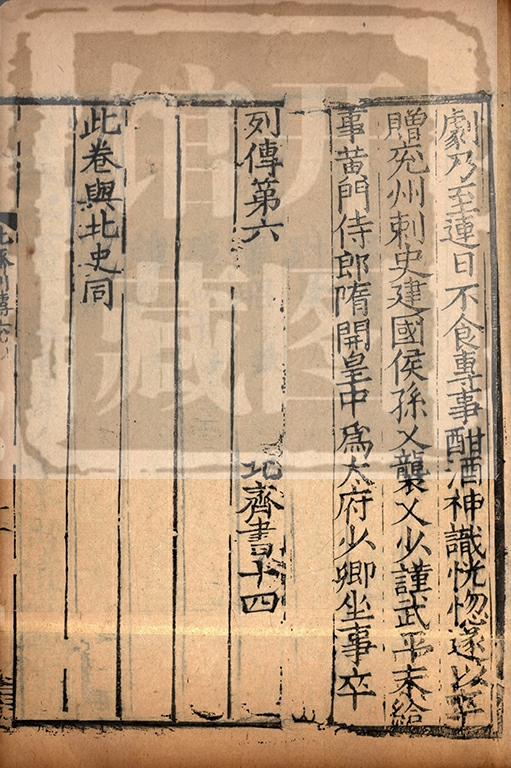 劇乃至連日不食專事酣酒神識恍惚遂以卒
贈兖州刺史建國侯孫乂襲乂少謹武平末給
事黃門侍郎隋開皇中爲太府少卿坐事卒
列傳第六 北齊書十四
此卷與北史同